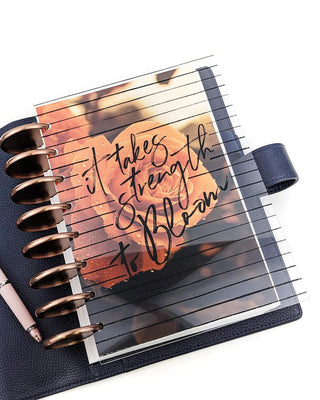 it takes
strength
to Bloom